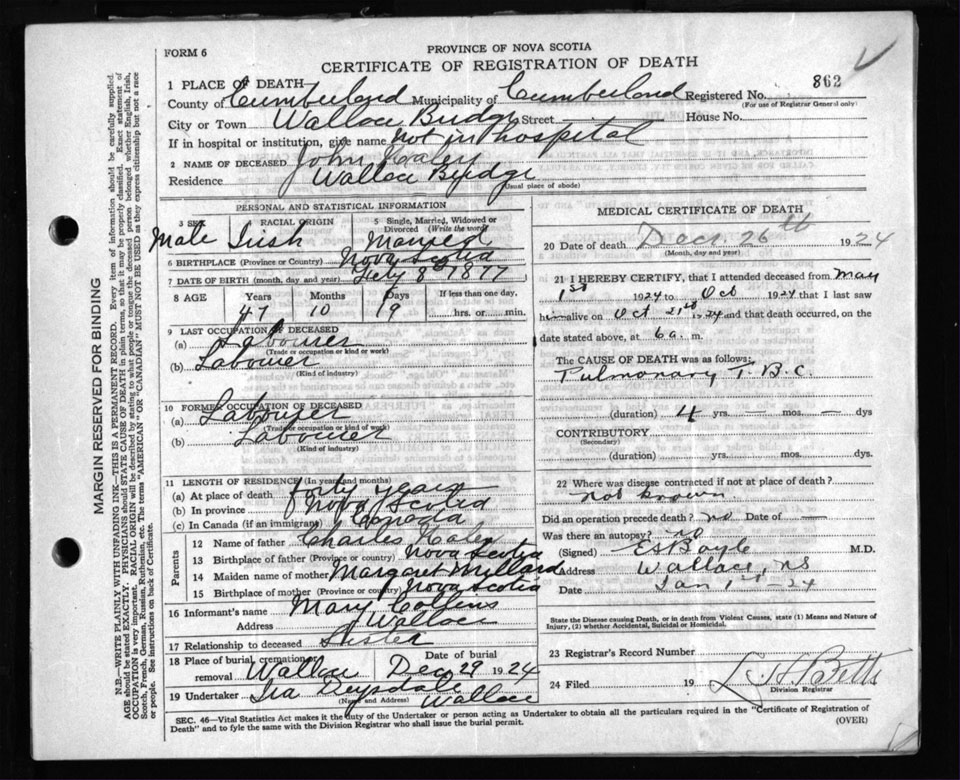 FORM 6
PROVINCE OF NOVA SCOTIA
CERTIFICATE OF REGISTRATION OF DEATH
MARGIN RESERVED FOR BINDING
N.B.—WRITE PLAINLY WITH UNFADING INK—THIS IS A PERMANENT RECORD. Every item of information should be carefully supplied.
AGE should be stated EXACTLY. PHYSICIANS should STATE CAUSE OF DEATH in plain terms, so that it may be properly classified. Exact statement of
OCCUPATION is very important. RACIAL ORIGIN will be described by stating to what people or tongue the deceased person belonged whether English, Irish,
Scotch, French, German, Russian, Ruthenian, etc. The terms "AMERICAN" or "CANADIAN" MUST NOT BE USED as they express citizenship but not a race
or people. See instructions on back of Certificate.
1 PLACE OF DEATH
862
County of Cumberland Municipality of Cumberland Registered No.
(For use of Registrar General only)
City or Town Wallace Bridge Street House No.
If in hospital or institution, give name Not in hospital
2 NAME OF DECEASED John
Residence Wallace Bridge
(Usual place of abode)
PERSONAL AND STATISTICAL INFORMATION
3 SEX RACIAL ORIGIN 5 Single, Married, Widowed or Divorced (Write the word)
Male Irish Married
6 BIRTHPLACE (Province or Country) Nova Scotia
7 DATE OF BIRTH (month, day and year) 8 1877
8 AGE Years Months Days If less than one day,
47 10 19 hrs. or min.
9 LAST OCCUPATION OF DECEASED
(a) Labourer
(Trade or occupation or kind or work)
(b) Labourer
(Kind of industry)
10 FORMER OCCUPATION OF DECEASED
(a) Labourer
(Trade or occupation or kind of work)
(b) Labourer
(Kind of industry)
11 LENGTH OF RESIDENCE (In years and months)
(a) At place of death forty years
(b) In province Nova Scotia
(c) In Canada (if an immigrant) Canada
Parents
12 Name of father Charles
13 Birthplace of father (Province or country) Nova Scotia
14 Maiden name of mother Margaret Millard
15 Birthplace of mother (Province or country) Nova Scotia
16 Informant's name Mary Collins
Address Wallace
17 Relationship to deceased Sister
18 Place of burial, cremation, removal Wallace Date of burial Dec 29 1924
19 Undertaker Ira Wallace
(Name and Address)
MEDICAL CERTIFICATE OF DEATH
20 Date of death Dec 26th 1924
(Month, day and year)
21 I HEREBY CERTIFY, that I attended deceased from May
1st 1924 to Oct 1924 that I last saw
him alive on Oct 21st 1924 and that death occurred, on the
date stated above, at 6 a. m.
The CAUSE OF DEATH was as follows:
Pulmonary T.B.C.
(duration) 4 yrs. — mos. — dys
CONTRIBUTORY
(Secondary)
(duration) yrs. mos. dys.
22 Where was disease contracted if not at place of death?
not known
Did an operation precede death? no Date of —
Was there an autopsy? no
(Signed) E S Boyle M.D.
Address Wallace, NS
Date Jan 1st -24
State the Disease causing Death, or in death from Violent Causes, state (1) Means and Nature of
Injury, (2) whether Accidental, Suicidal or Homicidal.
23 Registrar's Record Number
24 Filed 19 Betts
Division Registrar
SEC. 46—Vital Statistics Act makes it the duty of the Undertaker or person acting as Undertaker to obtain all the particulars required in the "Certificate of Registration of
Death" and to fyle the same with the Division Registrar who shall issue the burial permit. (OVER)